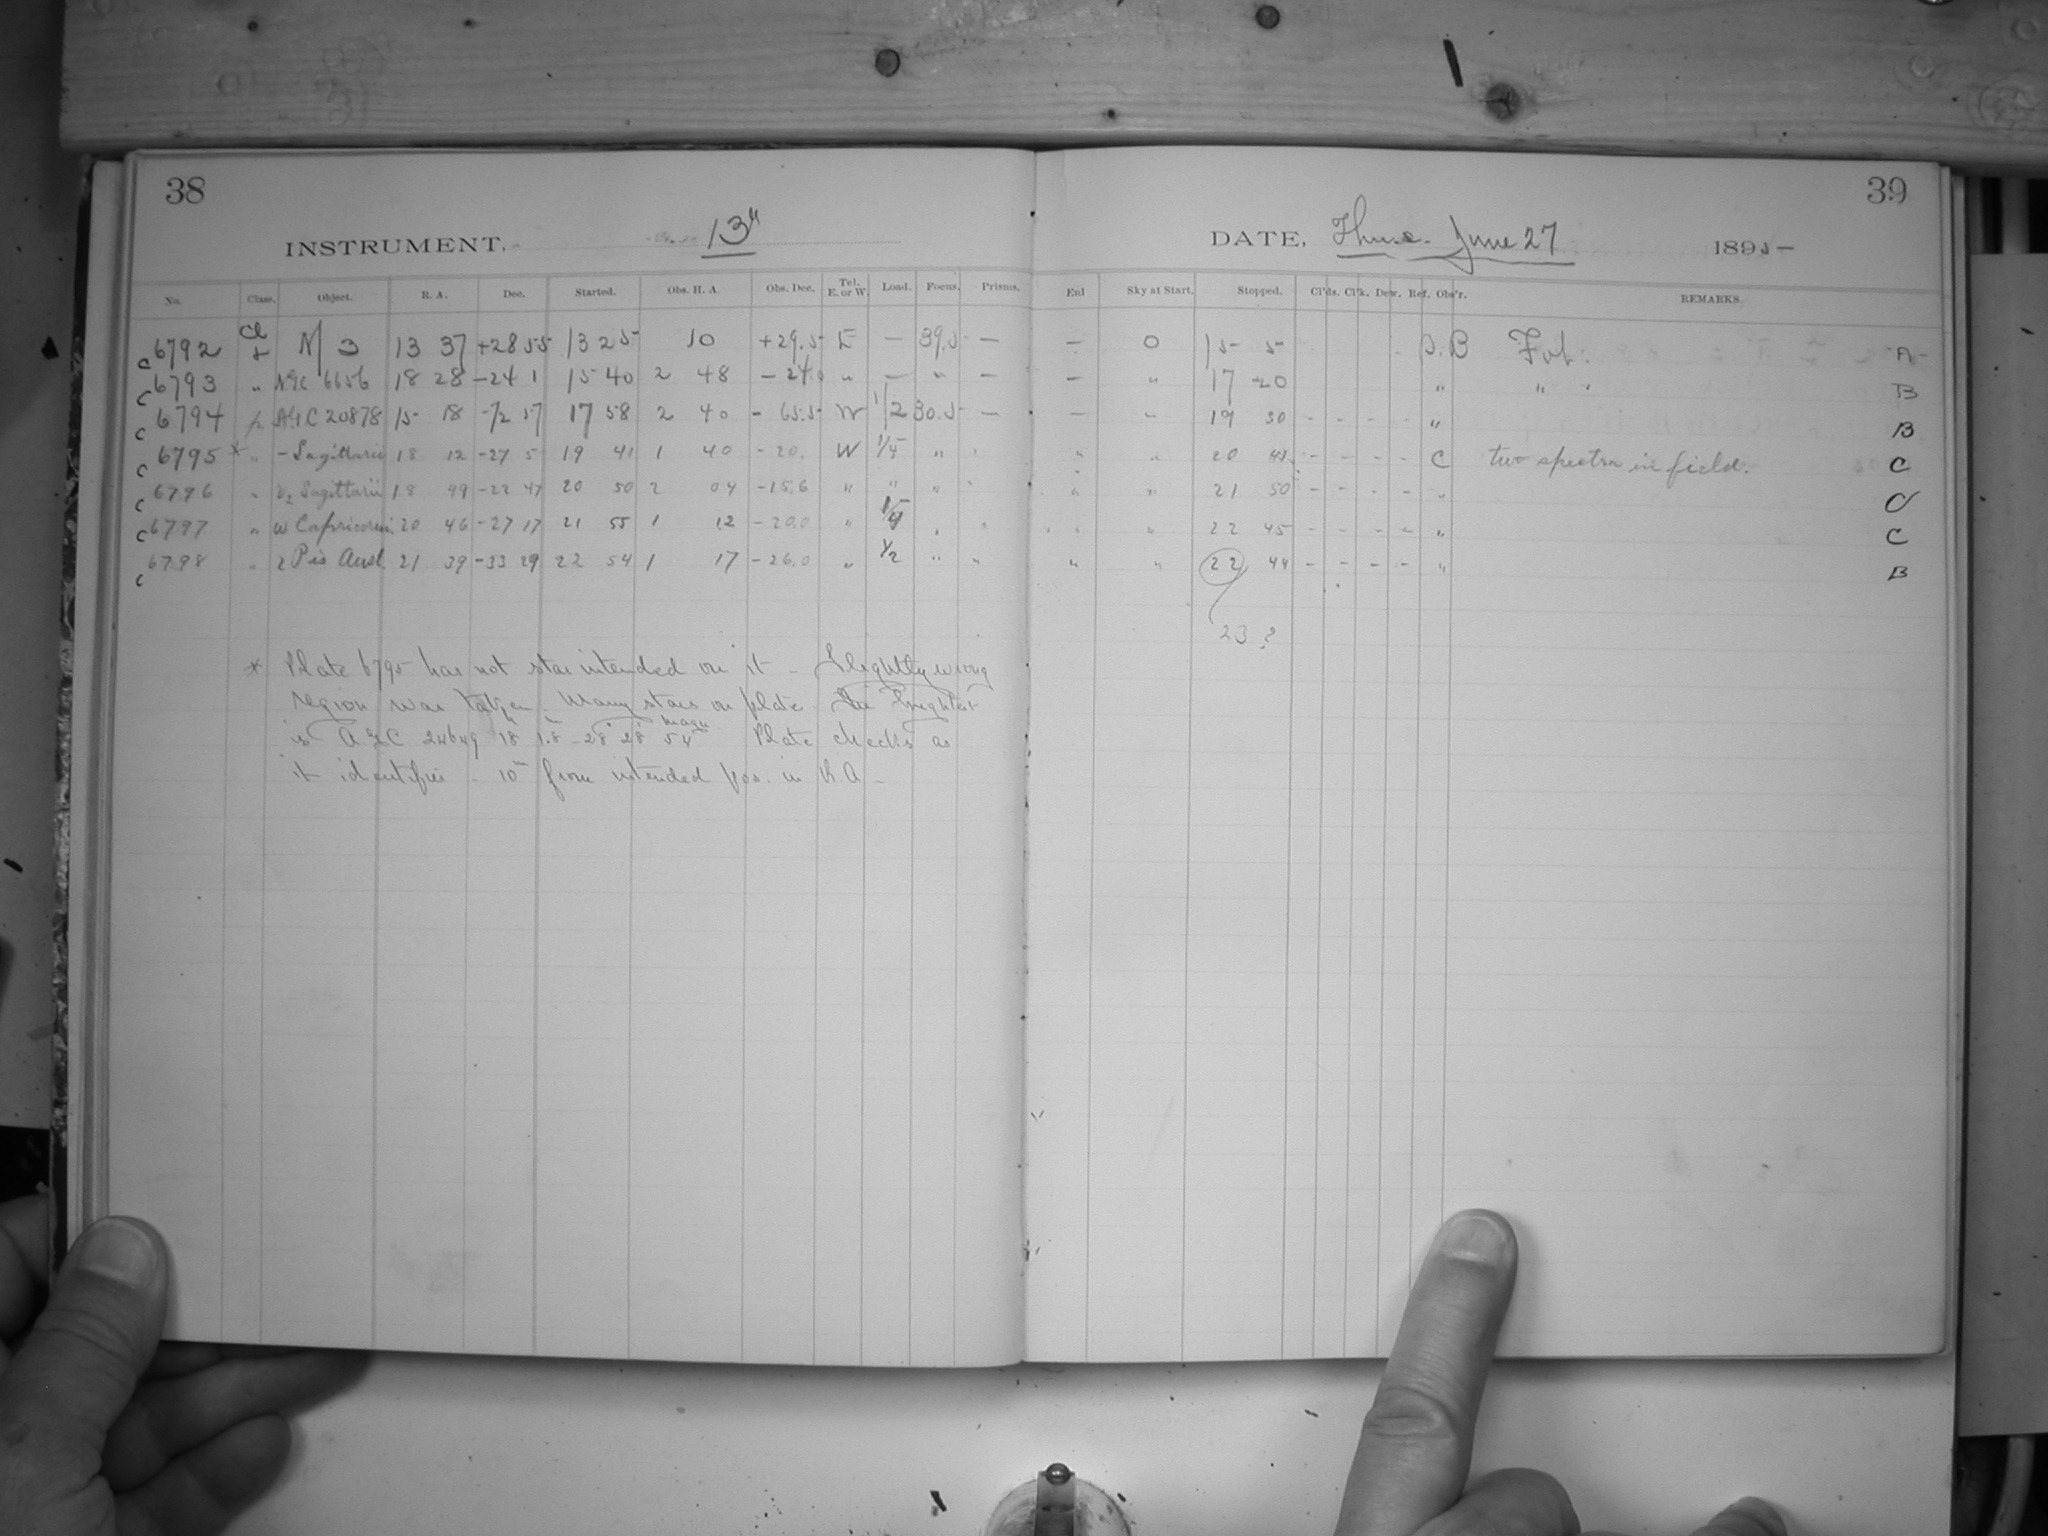 38
39
INSTRUMENT, 13"
DATE, Thurs. June 27 1895
No. Class. Object. R. A. Dec. Started. Obs. H. A Obs. Dec. Tel. E. or W. Load. Focus. Prisms. Enl Sky at Start. Stopped. Cl'ds. Cl'k. Dew. Ref. Obs'r. REMARKS.
C 6792 Cl M 3 13 37 +28 55 13 25 10 +29.5 E — 39.5 — — 0 15 5 B A
C 6793 " NGC 6656 18 28 -24 1 15 40 2 48 -24.0 " — " — — " 17 20 " " B
C 6794 AGC 20878 15 18 -72 57 17 58 2 40 - 65.5 W 1/2 30.5 — — " 19 30 - - - - " B
C 6795 * " - Sagittarii 18 12 -27 5 19 41 1 40 -20. W " " " 20 41 - - - - C two spectra in field. C
C 6796 " ν2 Sagittarii 18 49 -22 47 20 50 2 04 -15.6 " " " " " " 21 50 - - - - " C
C 6797 " ω Capricorni 20 46 -27 17 21 55 1 12 -20.0 " " " " " 22 45 - - - - " C
C 6798 " Pis Aust. 21 39 -33 29 22 54 1 17 -26.0 " 1/2 " " " " 22 44 - - - - " B
23 ?
* Plate 6795 has not star intended on it - Slightly wrong
region was taken. Many stars on plate. The brightest
is A.G.C 24649 18h 1.8m -28° 28' magn 5.4 Plate checks as
it identifies - 10m from intended pos. in R.A -